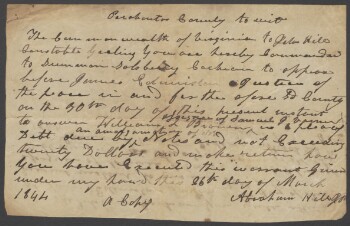 Pocahontas County to wit
The Common wealth of Virginia to John Hill
Constable Greeting You are hereby Commanded
to Summon Salsberry Cockran to appear
before James Justice of
the peace in and for the afore sd County
on the 30th day of this present instant
to answer William assignee of Samuel
an assignment of in a plea of
Debt due by Note and not Exceeding
twenty Dollars and make return how
You have Executed this warrant Given
under my hand this 26th day of March
1844 A Copy Abraham Hill